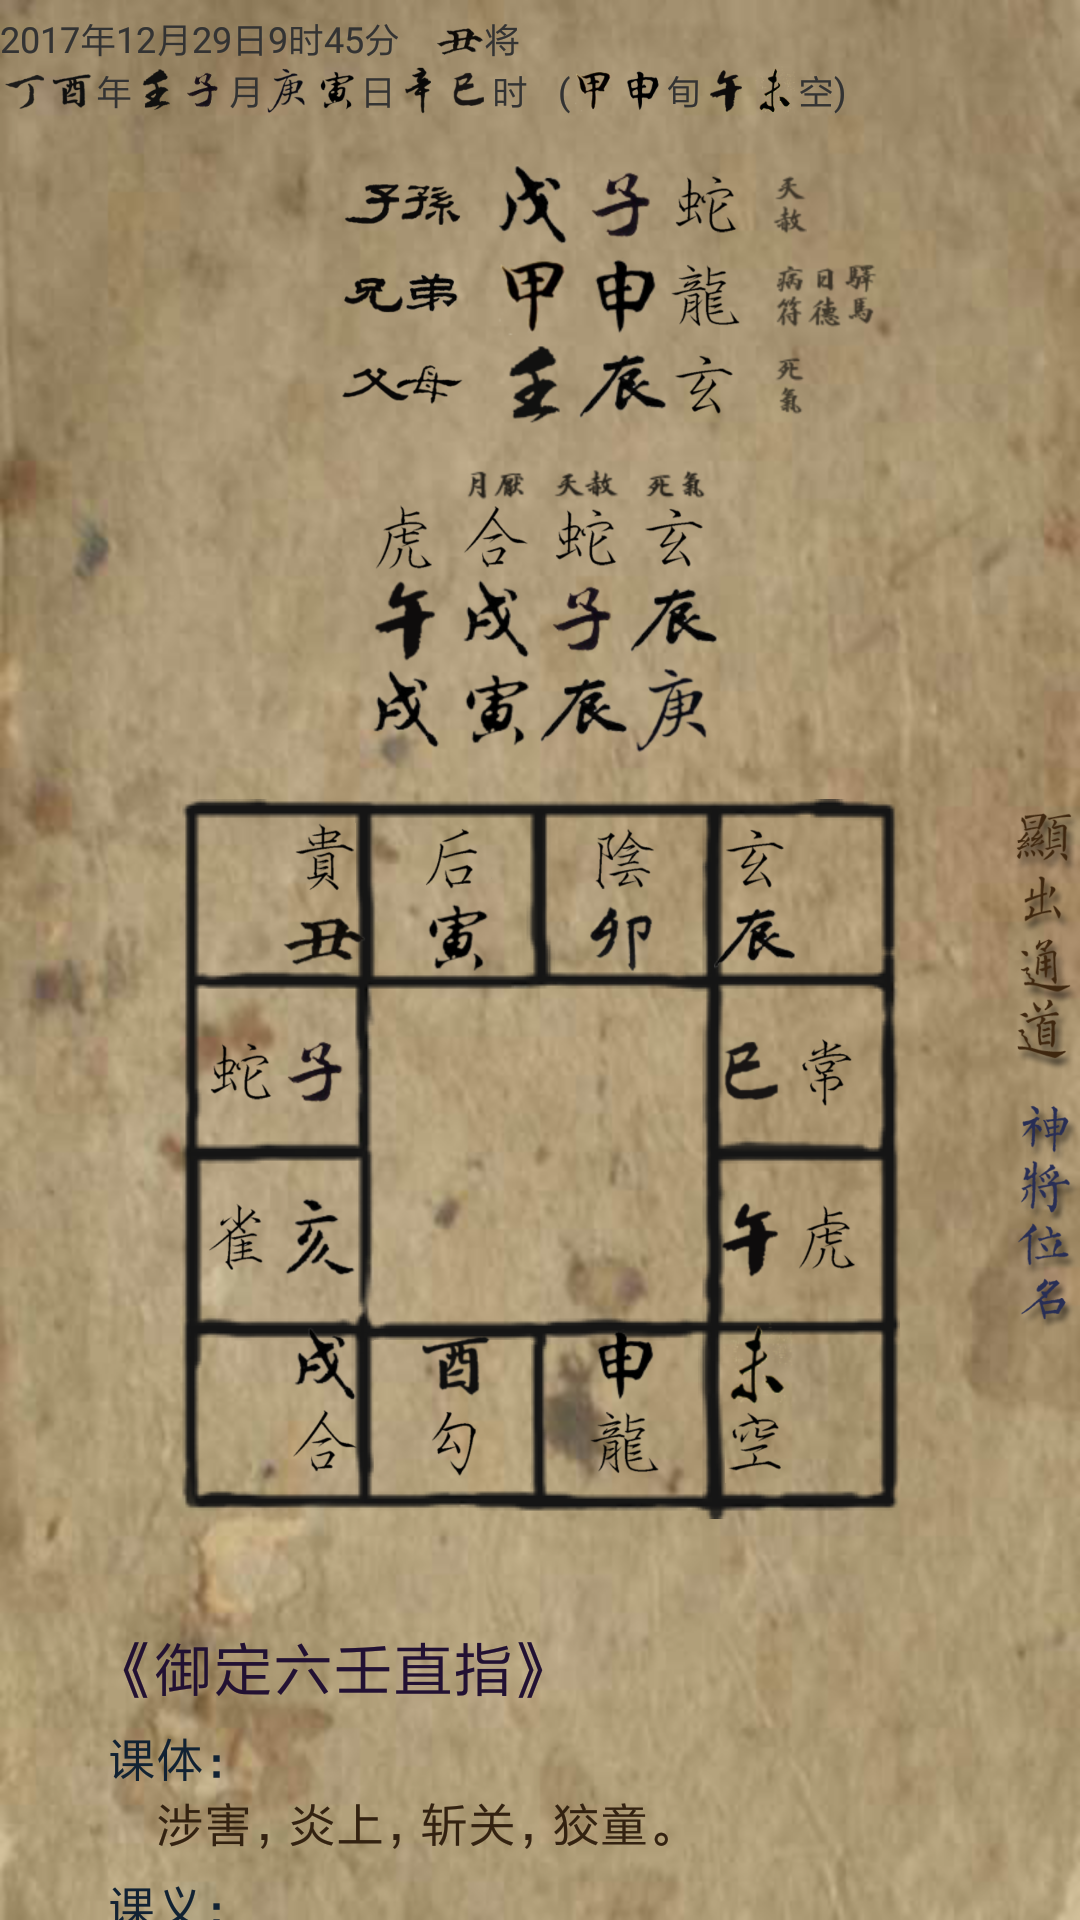 2017年12月29日9时45分 丑将
丁酉年壬子月庚寅日辛巳时 (甲申旬午未空)
子孫 戊子蛇 天赦
兄弟 甲申龍 病符 日德 驛馬
父母 壬辰玄 死氣
月厭 天赦 死氣
虎合蛇玄
午戌子辰
戌寅辰庚
貴 后 陰 玄
丑 寅 卯 辰
蛇子 巳常
雀亥 午虎
戌 酉 申 未
合 勾 龍 空
顯出通道
神將位名
《御定六壬直指》
课体：
涉害，炎上，斩关，狡童。
课义：